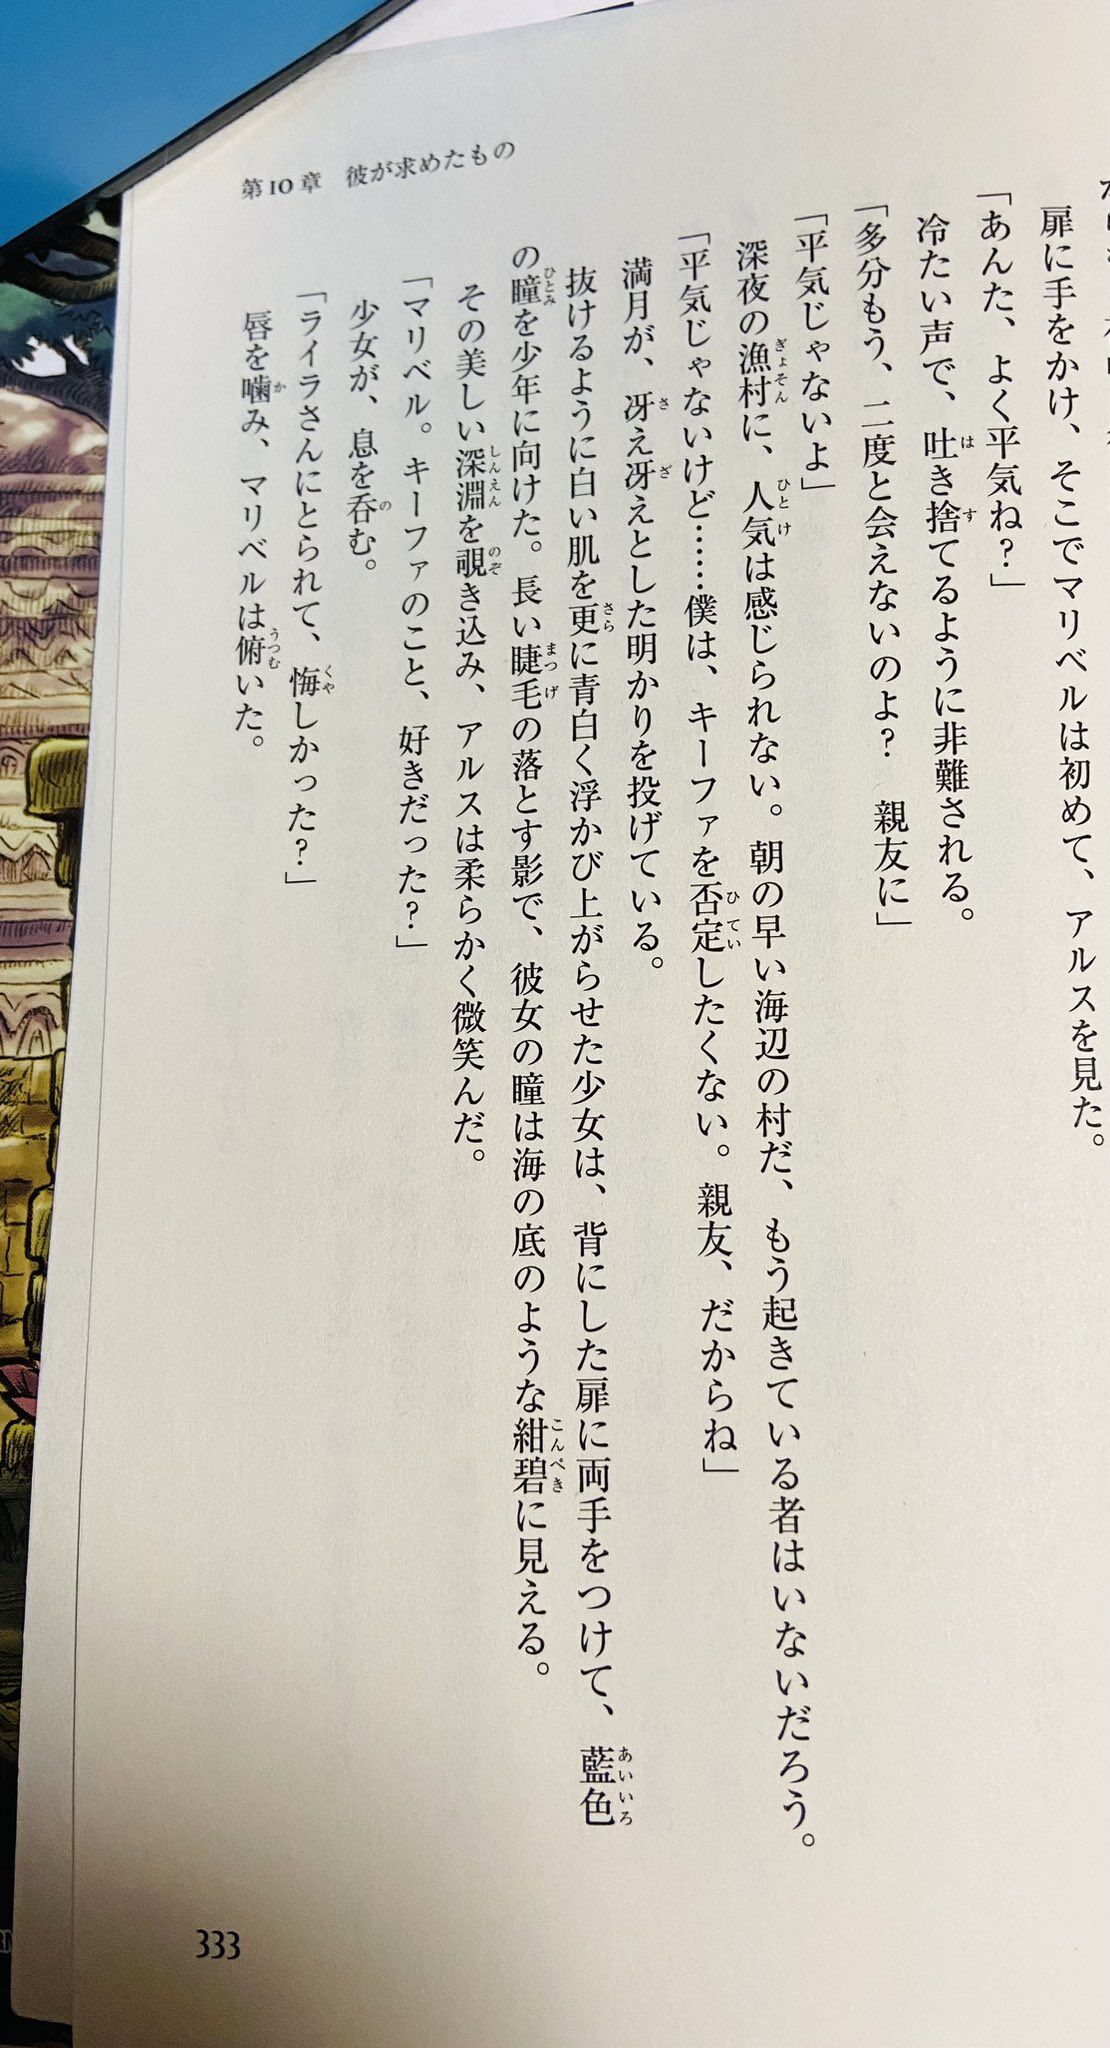 第10章 彼が求めたもの
扉に手をかけ、そこでマリベルは初めて、アルスを見た。
「あんた、よく平気ね?」
冷たい声で、吐き捨てるように非難される。
「多分もう、二度と会えないのよ? 親友に」
「平気じゃないよ」
深夜の漁村に、人気は感じられない。朝の早い海辺の村だ、もう起きている者はいないだろう。
「平気じゃないけど……僕は、キーファを否定したくない。親友、だからね」
満月が、冴え冴えとした明かりを投げている。
抜けるように白い肌を更に青白く浮かび上がらせた少女は、背にした扉に両手をつけて、藍色
の瞳を少年に向けた。長い睫毛の落とす影で、彼女の瞳は海の底のような紺碧に見える。
その美しい深淵を覗き込み、アルスは柔らかく微笑んだ。
「マリベル。キーファのこと、好きだった?」
少女が、息を呑む。
「ライラさんにとられて、悔しかった?」
唇を噛み、マリベルは俯いた。
333